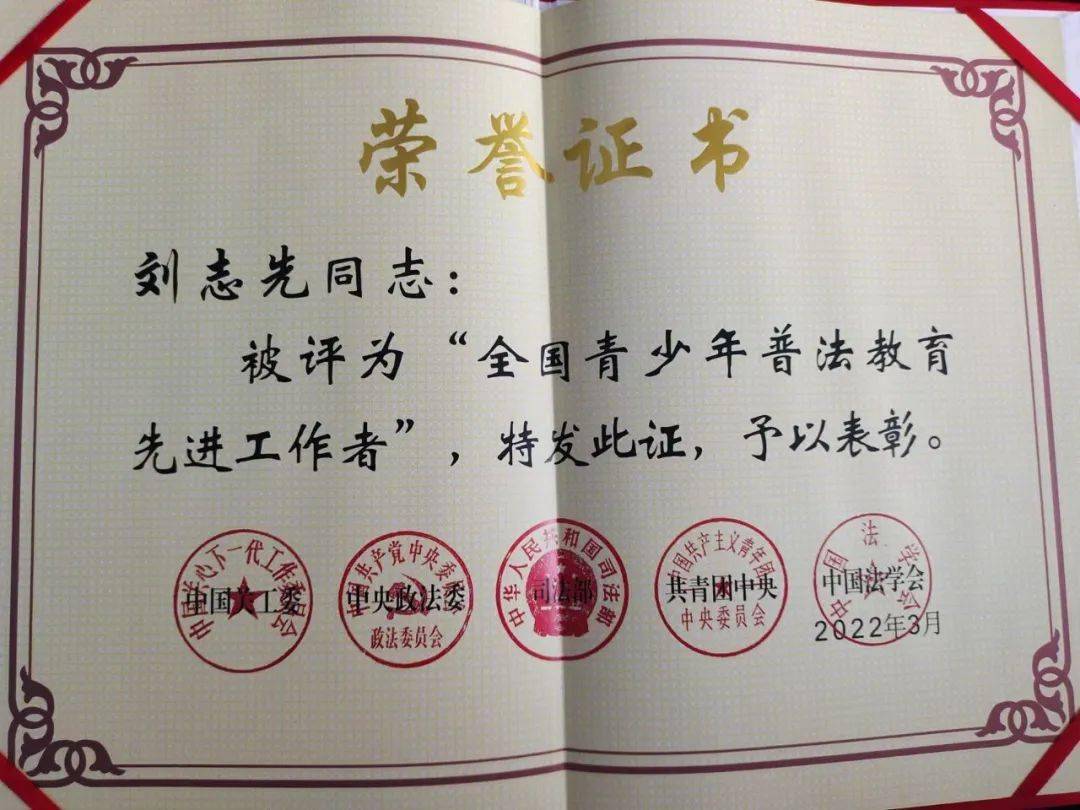 荣誉证书
刘志先同志：
被评为“全国青少年普法教育
先进工作者”，特发此证，予以表彰。
中国关心下一代工作委员会
中国关工委
中国共产党中央委员会
中央政法委
政法委员会
中华人民共和国司法部
司法部
中国共产主义青年团
共青团中央
中央委员会
中国法学会
中国法学会
2022年3月